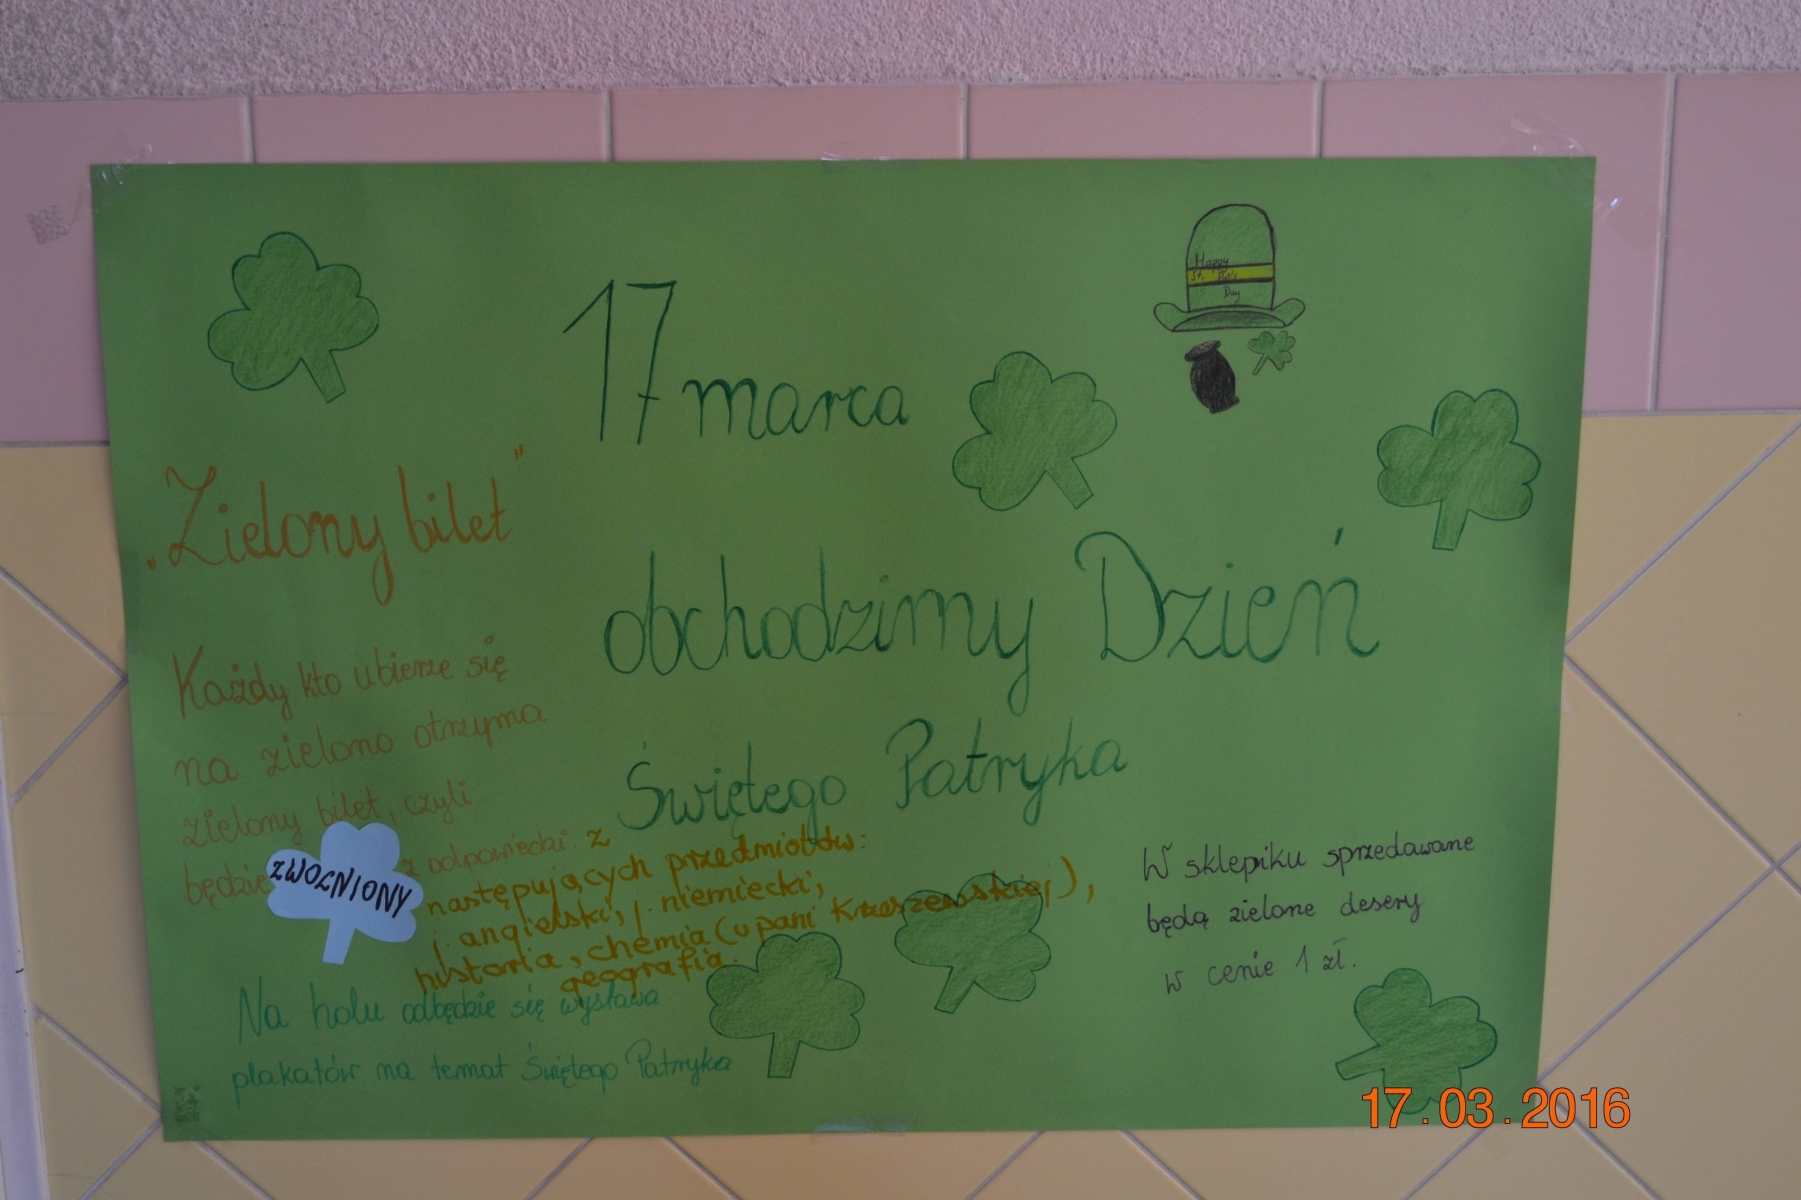 17 marca
obchodzimy Dzień
Świętego Patryka
Happy
St. Pat's
Day
„Zielony bilet”
Każdy kto ubierze się
na zielono otrzyma
zielony bilet, czyli
będzie ZWOLNIONY z odpowiedzi z
następujących przedmiotów:
j. angielski, j. niemiecki,
historia, chemia (u pani Krzeszewskiej),
geografia.
Na holu odbędzie się wystawa
plakatów na temat Świętego Patryka
W sklepiku sprzedawane
będą zielone desery
w cenie 1 zł.
17.03.2016